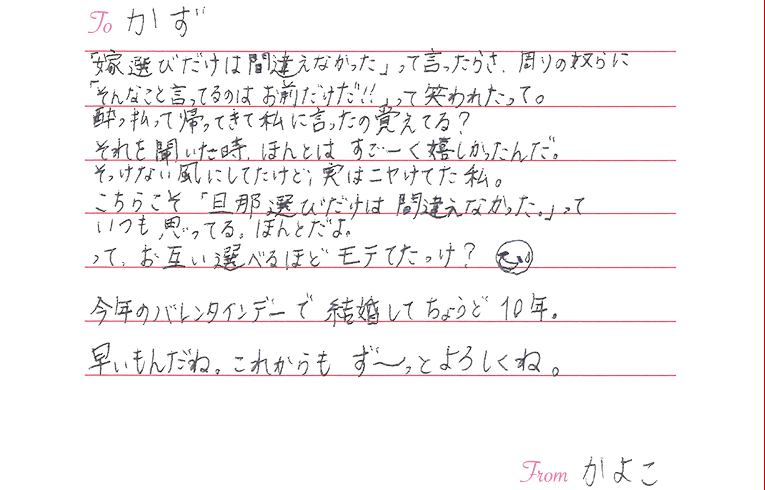 To かず
「嫁選びだけは間違えなかった」って言ったらさ、周りの奴らに
「そんなこと言ってるのはお前だけだ!!」って笑われたって。
酔っ払って帰ってきて私に言ったの覚えてる?
それを聞いた時、ほんとは すご〜く嬉しかったんだ。
そっけない風にしてたけど、実はニヤけてた私。
こちらこそ「旦那選びだけは間違えなかった。」って
いつも思ってる。ほんとだよ。
って、お互い選べるほどモテてたっけ?
今年のバレンタインデーで結婚してちょうど10年。
早いもんだね。これからも ず〜っとよろしくね。
From かよこ